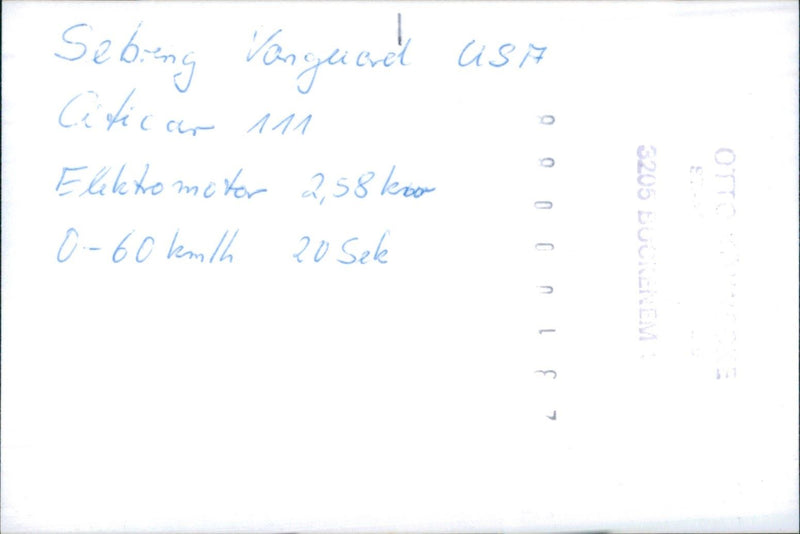 Sebring Vanguard USA
Citicar 111
Elektromotor 2,58 kw
0-60 km/h 20 Sek
OTTO
3205 BOCKENEM 1